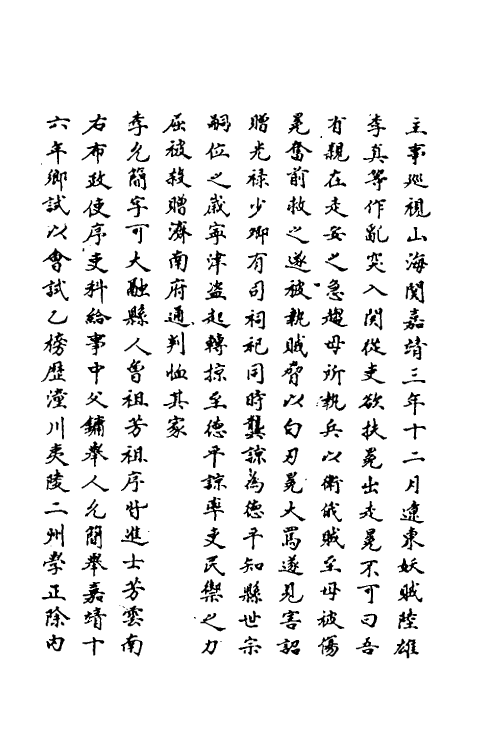 主事巡視山海関嘉靖三年十二月遼東妖賊陸雄
李真等作亂突入関從吏欲扶冕出走冕不可曰吾
有親在走安之急趨母所執兵以衛俄賊至母被傷
冕奮前救之遂被執賊脅以白刃冕大罵遂見害詔
贈光祿少卿有司祠祀同時龔諒為德平知縣世宗
嗣位之歲寧津盜起轉掠至德平諒率吏民禦之力
屈被殺贈濟南府通判恤其家
李允簡字可大融縣人曾祖芳祖序竝進士芳雲南
右布政使序吏科給事中父鏞舉人允簡舉嘉靖十
六年鄉試以會試乙榜歷潼川夷陵二州學正除內